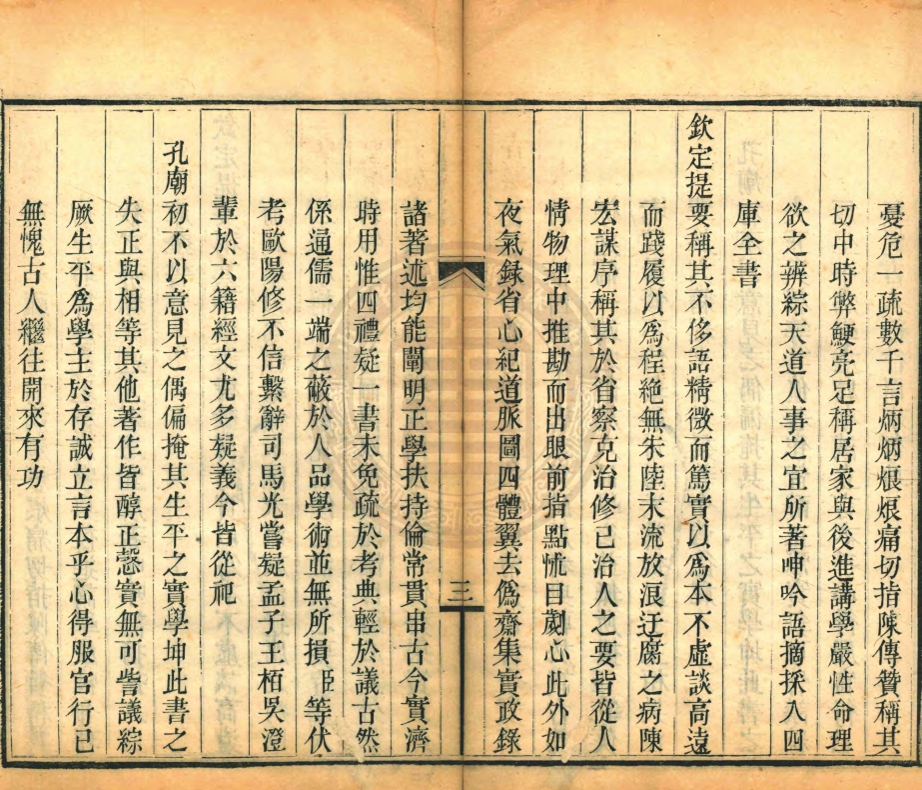 憂危一疏數千言炳炳烺烺痛切指陳傳贊稱其
切中時弊鯁亮足稱居家與後進講學嚴性命理
欲之辨綜天道人事之宜所著呻吟語摘採入四
庫全書
欽定提要稱其不侈語精微而篤實以爲本不虛談高遠
而踐履以爲程絕無朱陸末流放浪迂腐之病陳
宏謀序稱其於省察克治修己治人之要皆從人
情物理中推勘而出眼前指點怵目劌心此外如
夜氣錄省心紀道脈圖四體翼去僞齋集實政錄
三
諸著述均能闡明正學扶持倫常貫串古今實濟
時用惟四禮疑一書未免疏於考典輕於議古然
係通儒一端之蔽於人品學術並無所損臣等伏
考歐陽修不信繫辭司馬光嘗疑孟子王栢吳澄
輩於六籍經文尤多疑義今皆從祀
孔廟初不以意見之偶偏掩其生平之實學坤此書之
失正與相等其他著作皆醇正慤實無可訾議綜
厥生平爲學主於存誠立言本乎心得服官行己
無愧古人繼往開來有功